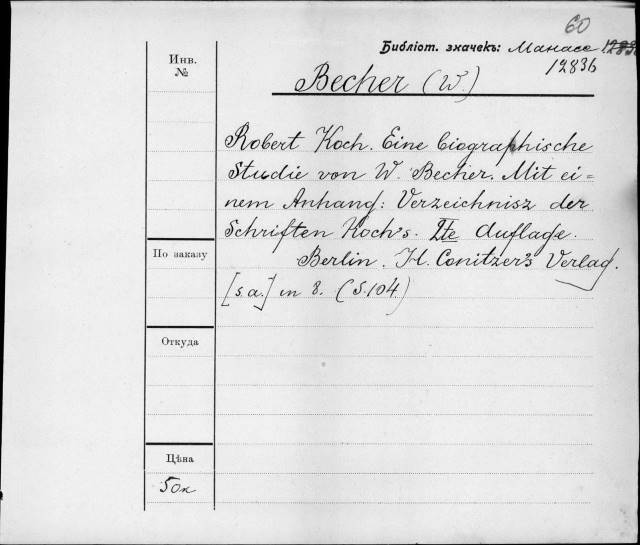 60
Библіот. значекъ: Манасс 1283
12836
Инв.
№
Becher (W.)
Robert Koch. Eine biographische
Studie von W. Becher. Mit ei=
nem Anhang: Verzeichnisz der
Schriften Koch's. IIte Auflage.
Berlin. H. Conitzer's Verlag.
[s.a.] in 8. (S. 104.)
По заказу
Откуда
Цѣна
50к